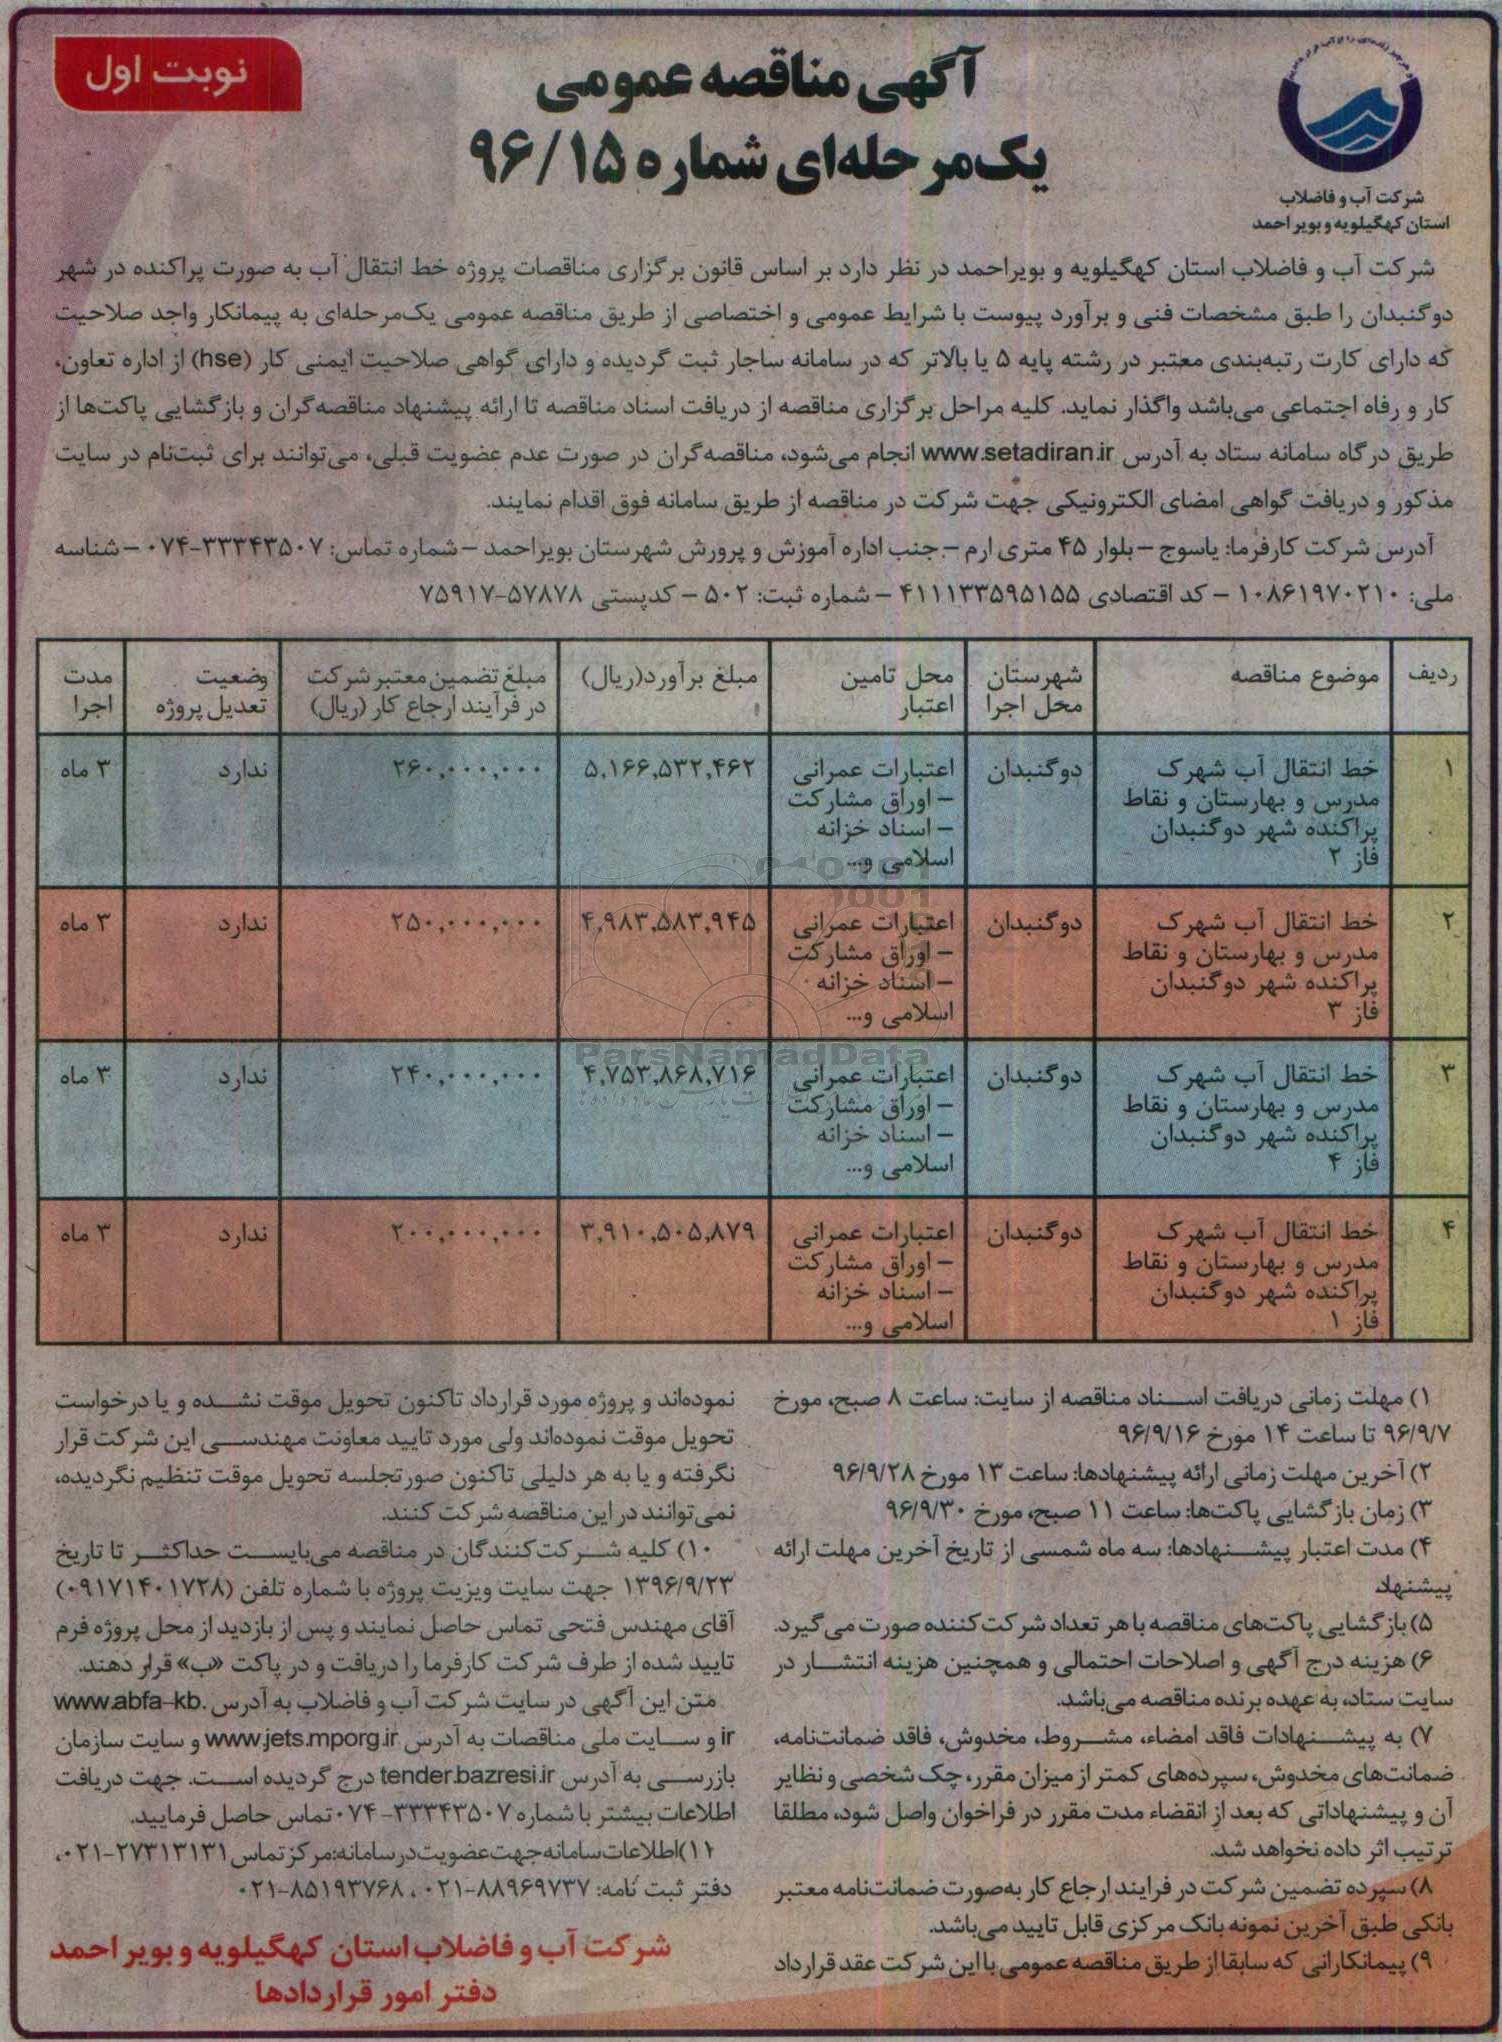 نوبت اول
آگهی مناقصه عمومی
یک‌مرحله‌ای شماره ۹۶/۱۵
شرکت آب و فاضلاب
استان کهگیلویه و بویراحمد
شرکت آب و فاضلاب استان کهگیلویه و بویراحمد در نظر دارد بر اساس قانون برگزاری مناقصات پروژه خط انتقال آب به صورت پراکنده در شهر
دوگنبدان را طبق مشخصات فنی و برآورد پیوست با شرایط عمومی و اختصاصی از طریق مناقصه عمومی یک‌مرحله‌ای به پیمانکار واجد صلاحیت
که دارای کارت رتبه‌بندی معتبر در رشته پایه ۵ یا بالاتر که در سامانه ساجار ثبت گردیده و دارای گواهی صلاحیت ایمنی کار (hse) از اداره تعاون،
کار و رفاه اجتماعی می‌باشد واگذار نماید. کلیه مراحل برگزاری مناقصه از دریافت اسناد مناقصه تا ارائه پیشنهاد مناقصه‌گران و بازگشایی پاکت‌ها از
طریق درگاه سامانه ستاد به آدرس www.setadiran.ir انجام می‌شود، مناقصه‌گران در صورت عدم عضویت قبلی، می‌توانند برای ثبت‌نام در سایت
مذکور و دریافت گواهی امضای الکترونیکی جهت شرکت در مناقصه از طریق سامانه فوق اقدام نمایند.
آدرس شرکت کارفرما: یاسوج – بلوار ۴۵ متری ارم – جنب اداره آموزش و پرورش شهرستان بویراحمد – شماره تماس: ۳۳۳۴۳۵۰۷-۰۷۴ – شناسه
ملی: ۱۰۸۶۱۹۷۰۲۱۰ – کد اقتصادی ۴۱۱۱۳۳۵۹۵۱۵۵ – شماره ثبت: ۵۰۲ – کدپستی ۵۷۸۷۸-۷۵۹۱۷
ردیف
موضوع مناقصه
شهرستان
محل اجرا
محل تامین
اعتبار
مبلغ برآورد(ریال)
مبلغ تضمین معتبر شرکت
در فرآیند ارجاع کار (ریال)
وضعیت
تعدیل پروژه
مدت
اجرا
۱
خط انتقال آب شهرک
مدرس و بهارستان و نقاط
پراکنده شهر دوگنبدان
فاز ۲
دوگنبدان
اعتبارات عمرانی
– اوراق مشارکت
– اسناد خزانه
اسلامی و...
۵,۱۶۶,۵۳۲,۴۶۲
۲۶۰,۰۰۰,۰۰۰
ندارد
۳ ماه
۲
خط انتقال آب شهرک
مدرس و بهارستان و نقاط
پراکنده شهر دوگنبدان
فاز ۳
دوگنبدان
اعتبارات عمرانی
– اوراق مشارکت
– اسناد خزانه
اسلامی و...
۴,۹۸۳,۵۸۳,۹۴۵
۲۵۰,۰۰۰,۰۰۰
ندارد
۳ ماه
۳
خط انتقال آب شهرک
مدرس و بهارستان و نقاط
پراکنده شهر دوگنبدان
فاز ۴
دوگنبدان
اعتبارات عمرانی
– اوراق مشارکت
– اسناد خزانه
اسلامی و...
۴,۷۵۳,۸۶۸,۷۱۶
۲۴۰,۰۰۰,۰۰۰
ندارد
۳ ماه
۴
خط انتقال آب شهرک
مدرس و بهارستان و نقاط
پراکنده شهر دوگنبدان
فاز ۱
دوگنبدان
اعتبارات عمرانی
– اوراق مشارکت
– اسناد خزانه
اسلامی و...
۳,۹۱۰,۵۰۵,۸۷۹
۲۰۰,۰۰۰,۰۰۰
ندارد
۳ ماه
ParsNamadData
۱) مهلت زمانی دریافت اسناد مناقصه از سایت: ساعت ۸ صبح، مورخ
۹۶/۹/۷ تا ساعت ۱۴ مورخ ۹۶/۹/۱۶
۲) آخرین مهلت زمانی ارائه پیشنهادها: ساعت ۱۳ مورخ ۹۶/۹/۲۸
۳) زمان بازگشایی پاکت‌ها: ساعت ۱۱ صبح، مورخ ۹۶/۹/۳۰
۴) مدت اعتبار پیشنهادها: سه ماه شمسی از تاریخ آخرین مهلت ارائه
پیشنهاد.
۵) بازگشایی پاکت‌های مناقصه با هر تعداد شرکت‌کننده صورت می‌گیرد.
۶) هزینه درج آگهی و اصلاحات احتمالی و همچنین هزینه انتشار در
سایت ستاد، به عهده برنده مناقصه می‌باشد.
۷) به پیشنهادات فاقد امضاء، مشروط، مخدوش، فاقد ضمانت‌نامه،
ضمانت‌های مخدوش، سپرده‌های کمتر از میزان مقرر، چک شخصی و نظایر
آن و پیشنهاداتی که بعد از انقضاء مدت مقرر در فراخوان واصل شود، مطلقا
ترتیب اثر داده نخواهد شد.
۸) سپرده تضمین شرکت در فرایند ارجاع کار به‌صورت ضمانت‌نامه معتبر
بانکی طبق آخرین نمونه بانک مرکزی قابل تایید می‌باشد.
۹) پیمانکارانی که سابقا از طریق مناقصه عمومی با این شرکت عقد قرارداد
نموده‌اند و پروژه مورد قرارداد تاکنون تحویل موقت نشده و یا درخواست
تحویل موقت نموده‌اند ولی مورد تایید معاونت مهندسی این شرکت قرار
نگرفته و یا به هر دلیلی تاکنون صورتجلسه تحویل موقت تنظیم نگردیده،
نمی‌توانند در این مناقصه شرکت کنند.
۱۰) کلیه شرکت‌کنندگان در مناقصه می‌بایست حداکثر تا تاریخ
۱۳۹۶/۹/۲۳ جهت سایت ویزیت پروژه با شماره تلفن (۰۹۱۷۱۴۰۱۷۲۸)
آقای مهندس فتحی تماس حاصل نمایند و پس از بازدید از محل پروژه فرم
تایید شده از طرف شرکت کارفرما را دریافت و در پاکت «ب» قرار دهند.
متن این آگهی در سایت شرکت آب و فاضلاب به آدرس www.abfa-kb.
ir و سایت ملی مناقصات به آدرس www.jets.mporg.ir و سایت سازمان
بازرسی به آدرس tender.bazresi.ir درج گردیده است. جهت دریافت
اطلاعات بیشتر با شماره ۳۳۳۴۳۵۰۷-۰۷۴ تماس حاصل فرمایید.
۱۱) اطلاعات سامانه جهت عضویت در سامانه: مرکز تماس ۲۷۳۱۳۱۳۱-۰۲۱،
دفتر ثبت نامه: ۸۸۹۶۹۷۳۷-۰۲۱، ۸۵۱۹۳۷۶۸-۰۲۱
شرکت آب و فاضلاب استان کهگیلویه و بویراحمد
دفتر امور قراردادها